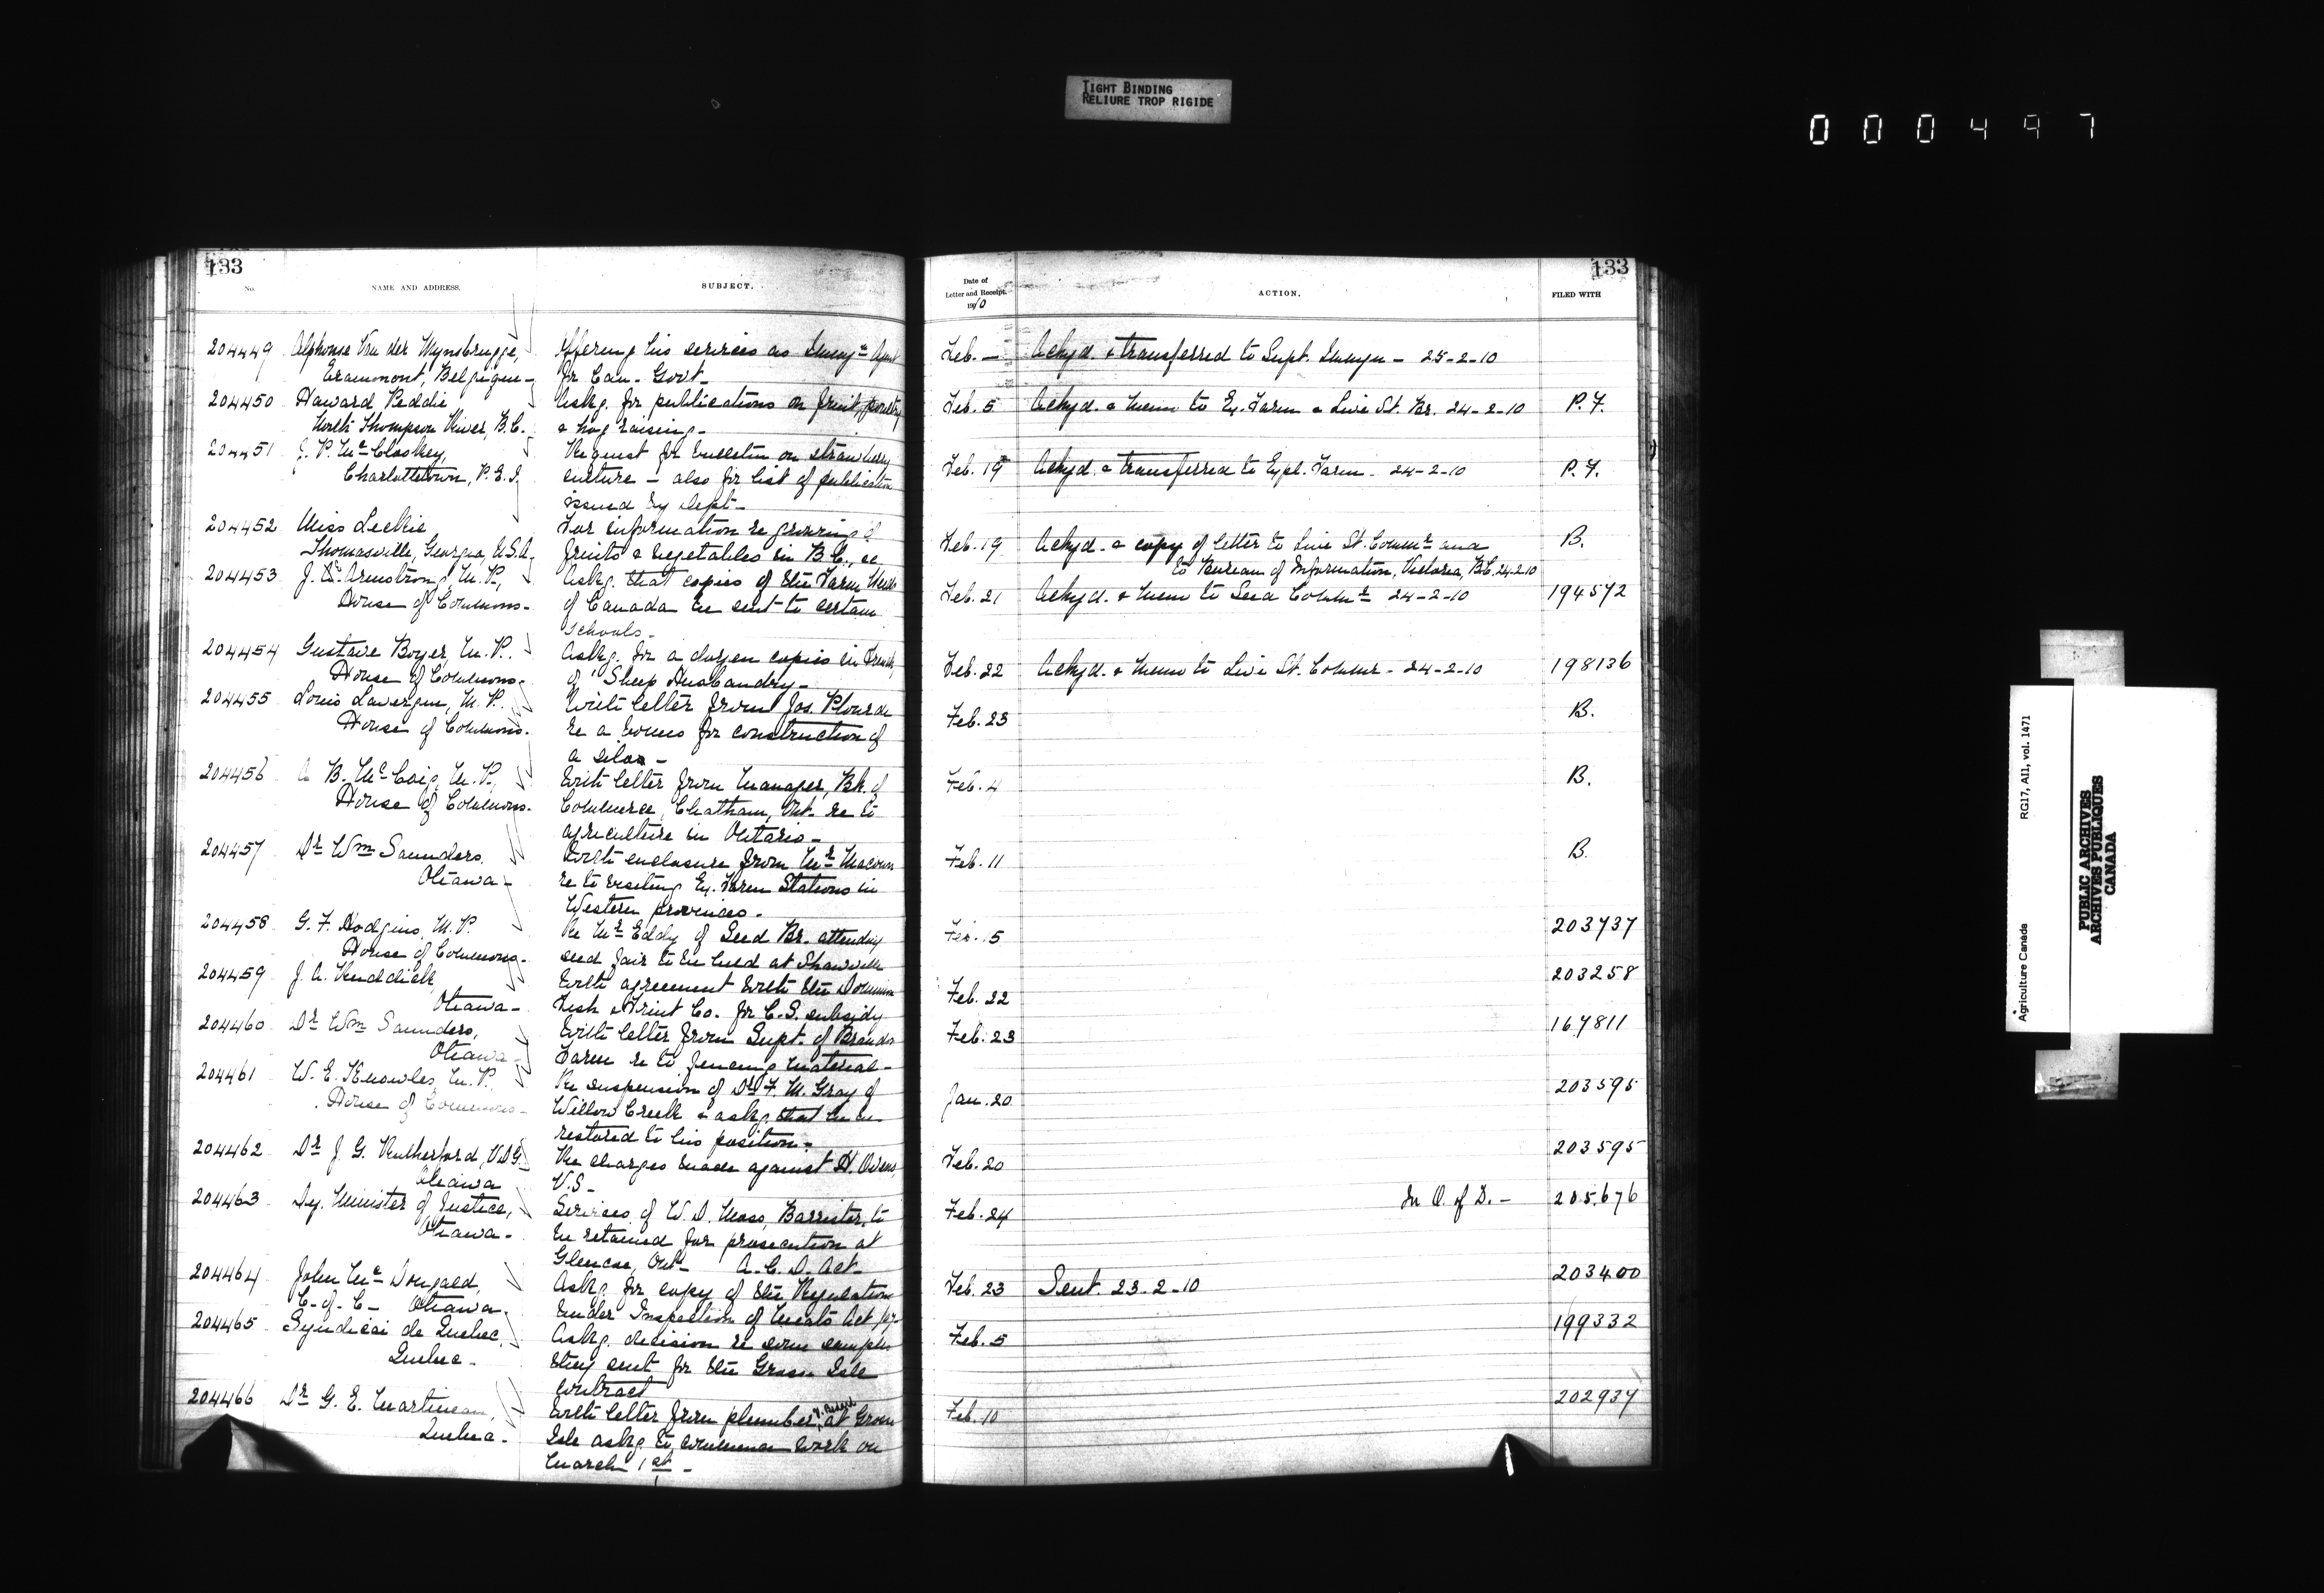 TIGHT BINDING
RELIURE TROP RIGIDE
000497
133
No.
NAME AND ADDRESS.
SUBJECT.
204449 Alphonse Van der Mynsbrugge, Offering his services as Immgn Agent
Eramont, Belgique - for Can. Govt -
204450 Howard Peddie Askg. for publications on fruit, poultry
North Thompson River, B.C. & hog raising -
204451 J. P. McCloskey, Request for bulletin on strawberry
Charlottetown, P.E.I. culture - also for list of publications
issued by Dept -
204452 Miss Leckie For information re growing of
Thomasville, Georgia, U.S.A. fruits & vegetables in B.C.,
204453 J. Armstrong, M.P., Askg. that copies of the Farm Weeds
House of Commons - of Canada be sent to certain
schools -
204454 Gustave Boyer, M.P. Askg. for a dozen copies in French,
House of Commons. of Sheep Husbandry -
204455 Louis Lavergne, M.P. With letter from Jos. Plourde
House of Commons. re a bonus for construction of
a silo -
204456 A. B. McCoig, M.P., With letter from Manager, Bk. of
House of Commons. Commerce, Chatham, Ont. re to
agriculture in Ontario -
204457 Dr Wm Saunders With enclosure from Mr Macoun
Ottawa - re to visiting Ex. Farm Stations in
Western provinces -
204458 G. F. Hodgins, M.P. Re Mr Eddy of Seed Br. attending
House of Commons - seed fair to be held at Shawville
204459 J. A. Ruddick With agreement with the Dominion
Ottawa - Fish & Fruit Co. for C.S. subsidy
204460 Dr Wm Saunders, With letter from Supt. of Brandon
Ottawa - Farm re to fencing material -
204461 W. E. Knowles, M.P. Re suspension of Dr F. M. Gray of
House of Commons - Willow Creek & askg. that he be
restored to his position -
204462 Dr J. G. Rutherford, V.D.G. Re charges made against H. Owens,
Ottawa V.S -
204463 Dy. Minister of Justice, Services of W. D. Moss, Barrister, to
Ottawa - be retained for prosecution at
Glencoe, Ont - A.C.D. Act -
204464 John McDougald, Askg. for copy of the Regulations
C. of C - Ottawa. under Inspection of Meats Act
204465 Syndicat de Quebec, Askg. decision re some samples
Quebec - they sent for the Grosse Isle
contract
204466 Dr G. E. Martineau, With letter from plumber at Grosse
Quebec - Isle askg. to commence work on
March 1st -
133
Date of
Letter and Receipt.
1910
ACTION.
FILED WITH
Feb. - Ackgd. & transferred to Supt. Immgn - 25-2-10
Feb. 5 Ackgd. & memo to Ex. Farm & Live St. Br. 24-2-10 P.F.
Feb. 19 Ackgd. & transferred to Expl. Farm - 24-2-10 P.F.
Feb. 19 Ackgd. & copy of letter to Live St. Commr and B.
to Bureau of Information, Victoria, B.C. 24-2-10
Feb. 21 Ackgd. & memo to Seed Commr 24-2-10 194572
Feb. 22 Ackgd. & memo to Live St. Commr - 24-2-10 198136
Feb. 23 B.
Feb. 4 B.
Feb. 11 B.
Feb. 15 203737
Feb. 22 203258
Feb. 23 167811
Jan. 20 203595
Feb. 20 203595
Feb. 24 In O. of D. - 205676
Feb. 23 Sent. 23-2-10 203400
Feb. 5 199332
Feb. 10 202937
Agriculture Canada
RG17, AII, vol. 1471
PUBLIC ARCHIVES
ARCHIVES PUBLIQUES
CANADA